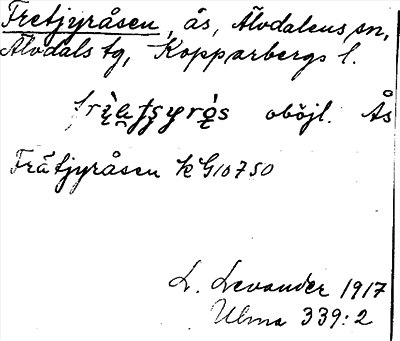 Fretjyråsen, ås, Älvdalens sn,
Älvdals tg, Kopparbergs l.
oböjl. Ås
Frätjyråsen K G10750
L. Levander 1917
Ulma 339:2